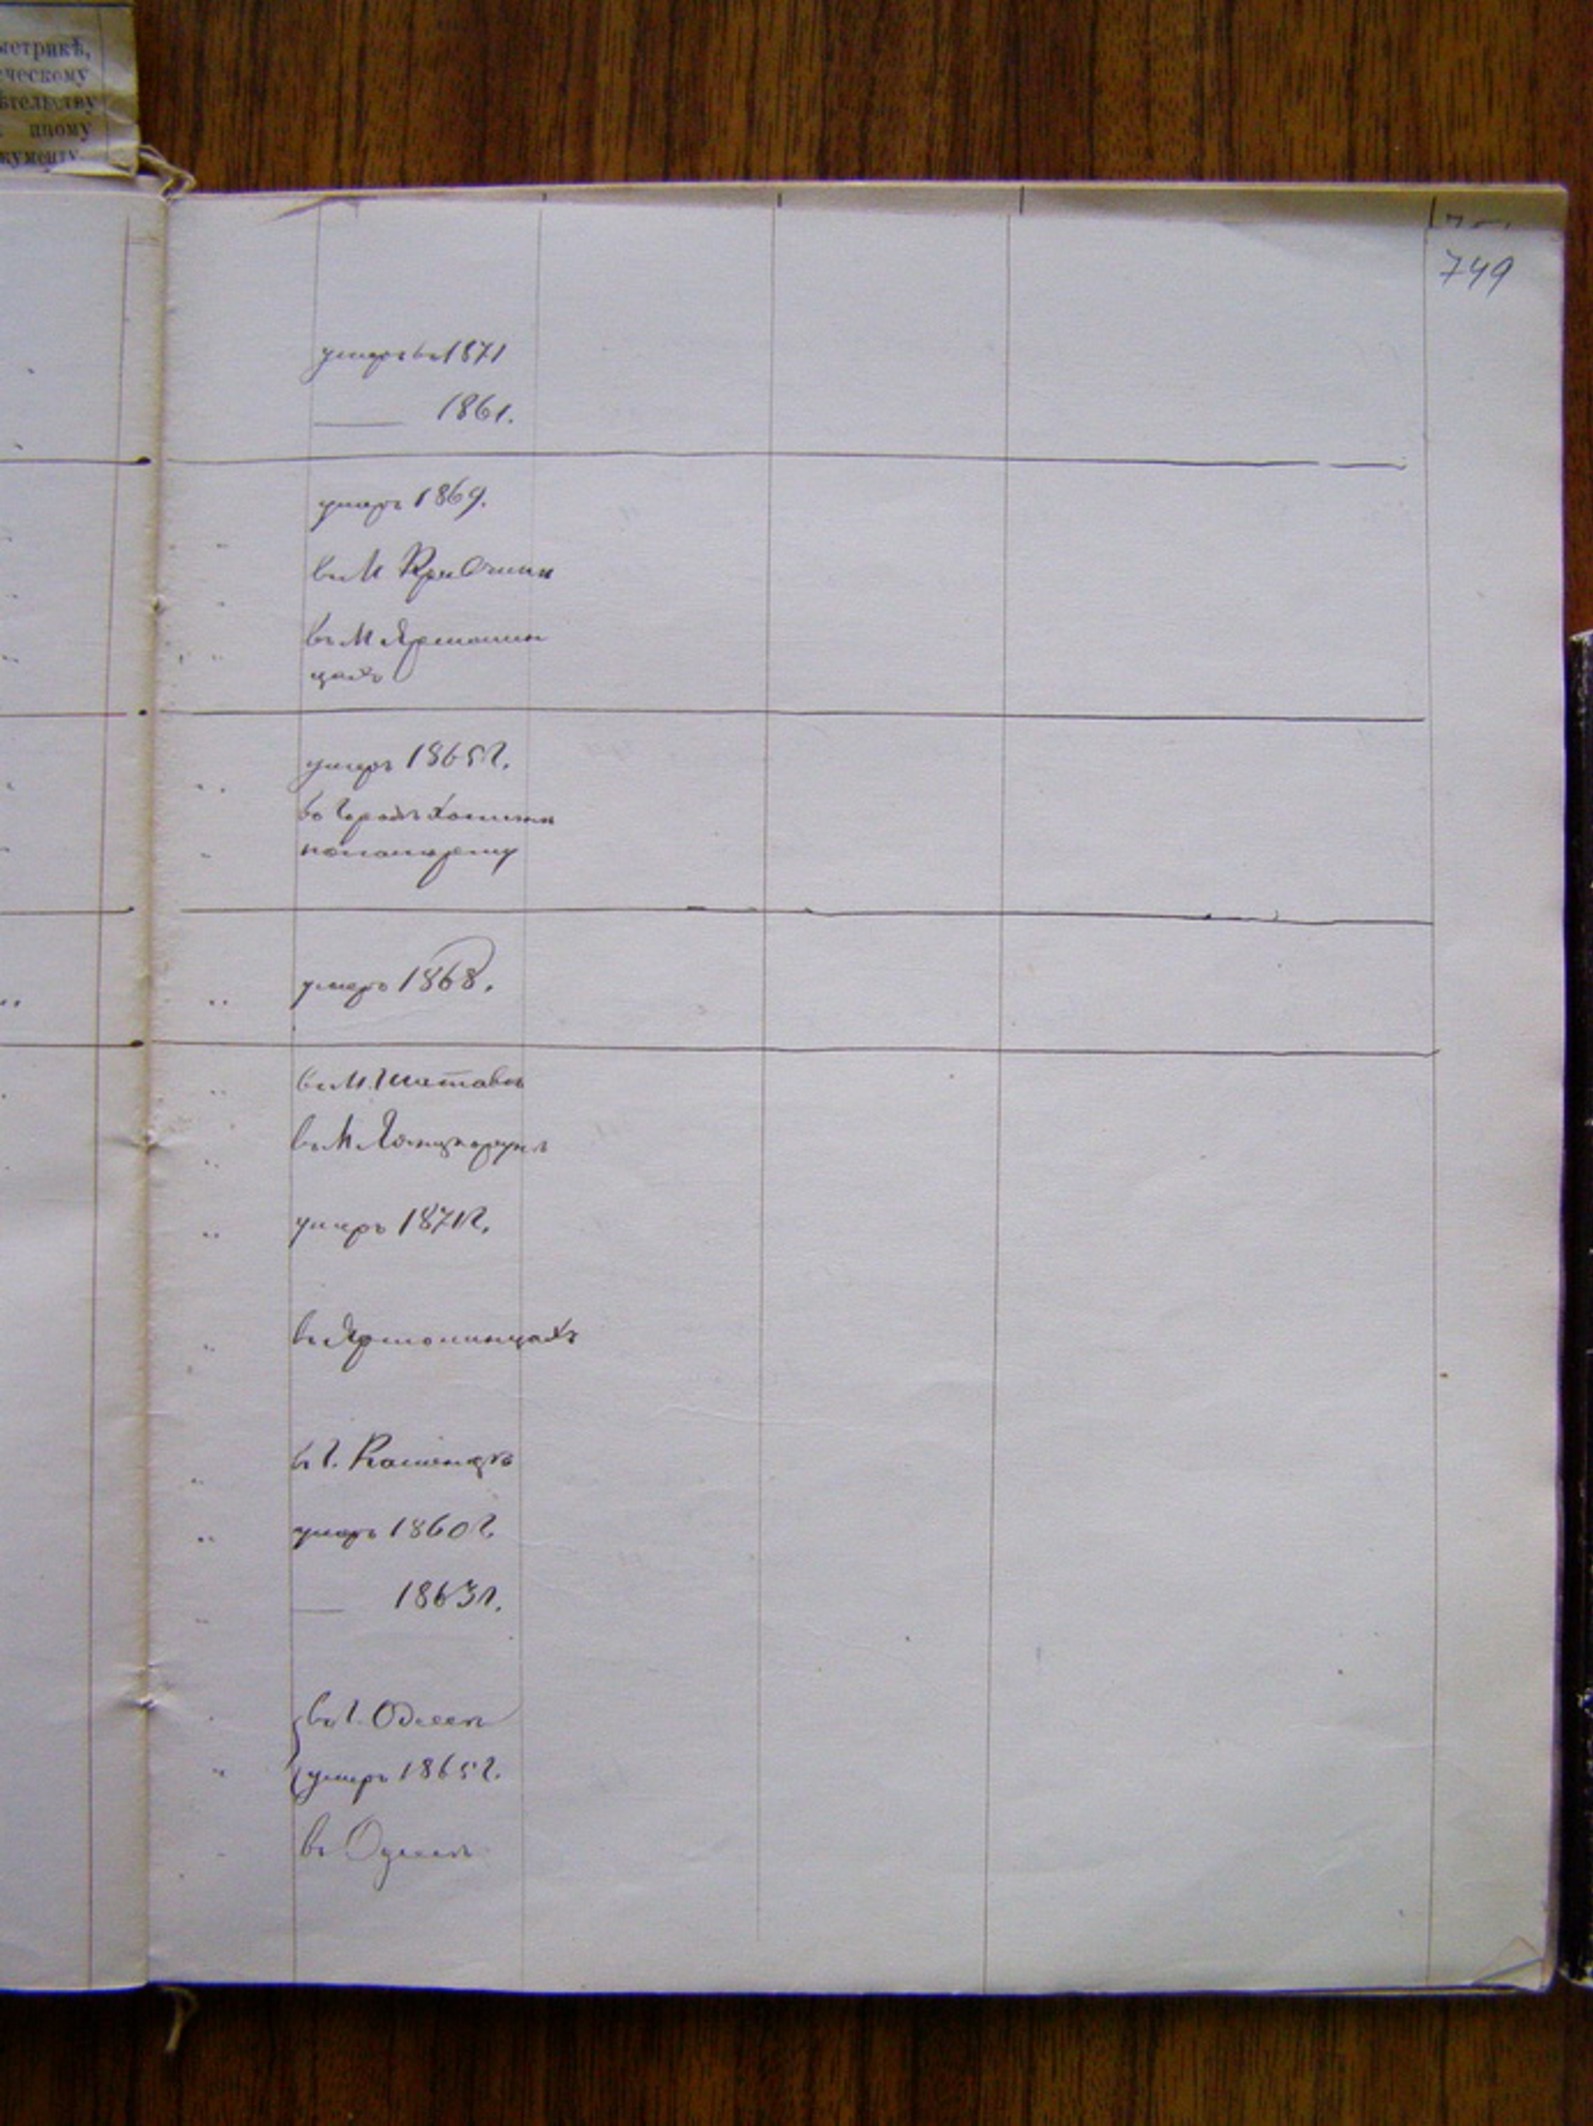 метрикѣ,
ческому
ѣтельству
иному
кументу.
749
умеръ въ 1871
1861.
умеръ 1869.
въ М
въ М Ярмолин
цахъ
умеръ 1865 г.
въ городѣ
умеръ 1868.
въ М. Шатавѣ
въ М Лянцкорунѣ
умеръ 1871 г.
въ Ярмолинцахъ
въ г. Каменцѣ
умеръ 1860 г.
1863 г.
въ г. Одессѣ
умеръ 1865 г.
въ Одессѣ